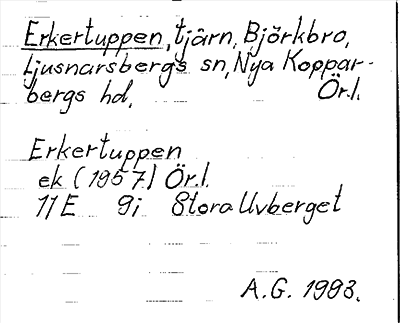 Erkertuppen, tjärn, Björkbro,
Ljusnarsbergs sn, Nya Koppar-
bergs hd, Ör.l.
Erkertuppen
ek (1957) Ör.l.
11E 9i Stora Uvberget
A.G. 1993.